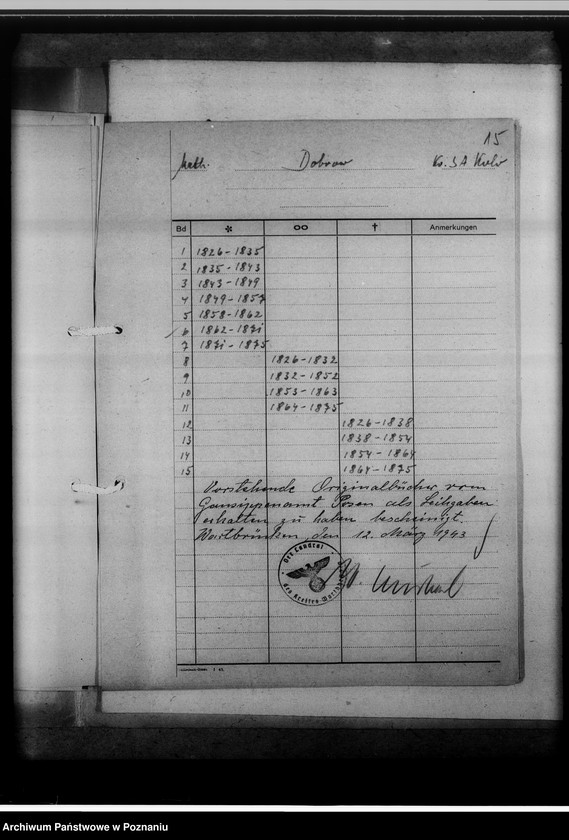 15
kath. Dobrow Ks. SA
Bd * ∞ † Anmerkungen
1 1826-1835
2 1835-1843
3 1843-1849
4 1849-1857
5 1858-1862
6 1862-1871
7 1871-1875
8 1826-1832
9 1832-1852
10 1853-1863
11 1864-1875
12 1826-1838
13 1838-1854
14 1854-1864
15 1864-1875
Vorstehende Originalbücher vom
Gausippenamt Posen als Leihgaben
erhalten zu haben bescheinigt.
Wartbrücken, den 12. März 1943
Der Landrat
des Kreises
Archiwum Państwowe w Poznaniu